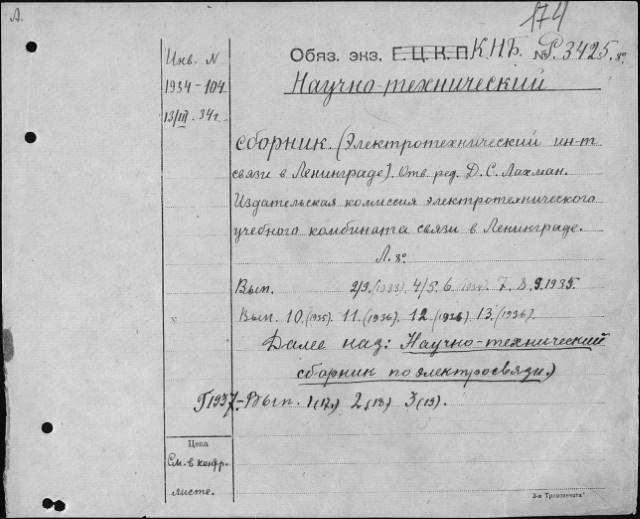 А.
174
Инв. N
1934-104
13/III. 34г.
Обяз. экз. Г.Ц.К.П. К.Н.Б. № Р. 3425. 8°
Научно-технический
сборник. (Электротехнический ин-т
связи в Ленинграде). Отв. ред. Д. С. Лахман.
Издательская комиссия электротехнического
учебного комбината связи в Ленинграде.
Л. 8°
Вып. 2/3. (1933). 4/5. 6. 7. 8. 9. 1935.
Вып. 10. (1935). 11. (1936). 12. (1936). 13. (1936).
Далее над: Научно-технический
сборник по электросвязи.)
Г1937-Вып. 1 (17.) 2 (18) 3 (19).
Цена
См. в конфр-
листе.
3-я Транспечать